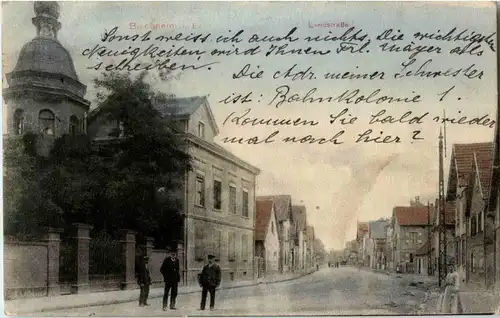 Bischheim i. Els.
Landstraße
Sonst weiss ich auch nichts. Die wichtigsten
Neuigkeiten wird Ihnen Frl. Mayer als
schreiben.
Die Adr. meiner Schwester
ist: Bahnkolonie 1.
Kommen Sie bald wieder
mal nach hier?